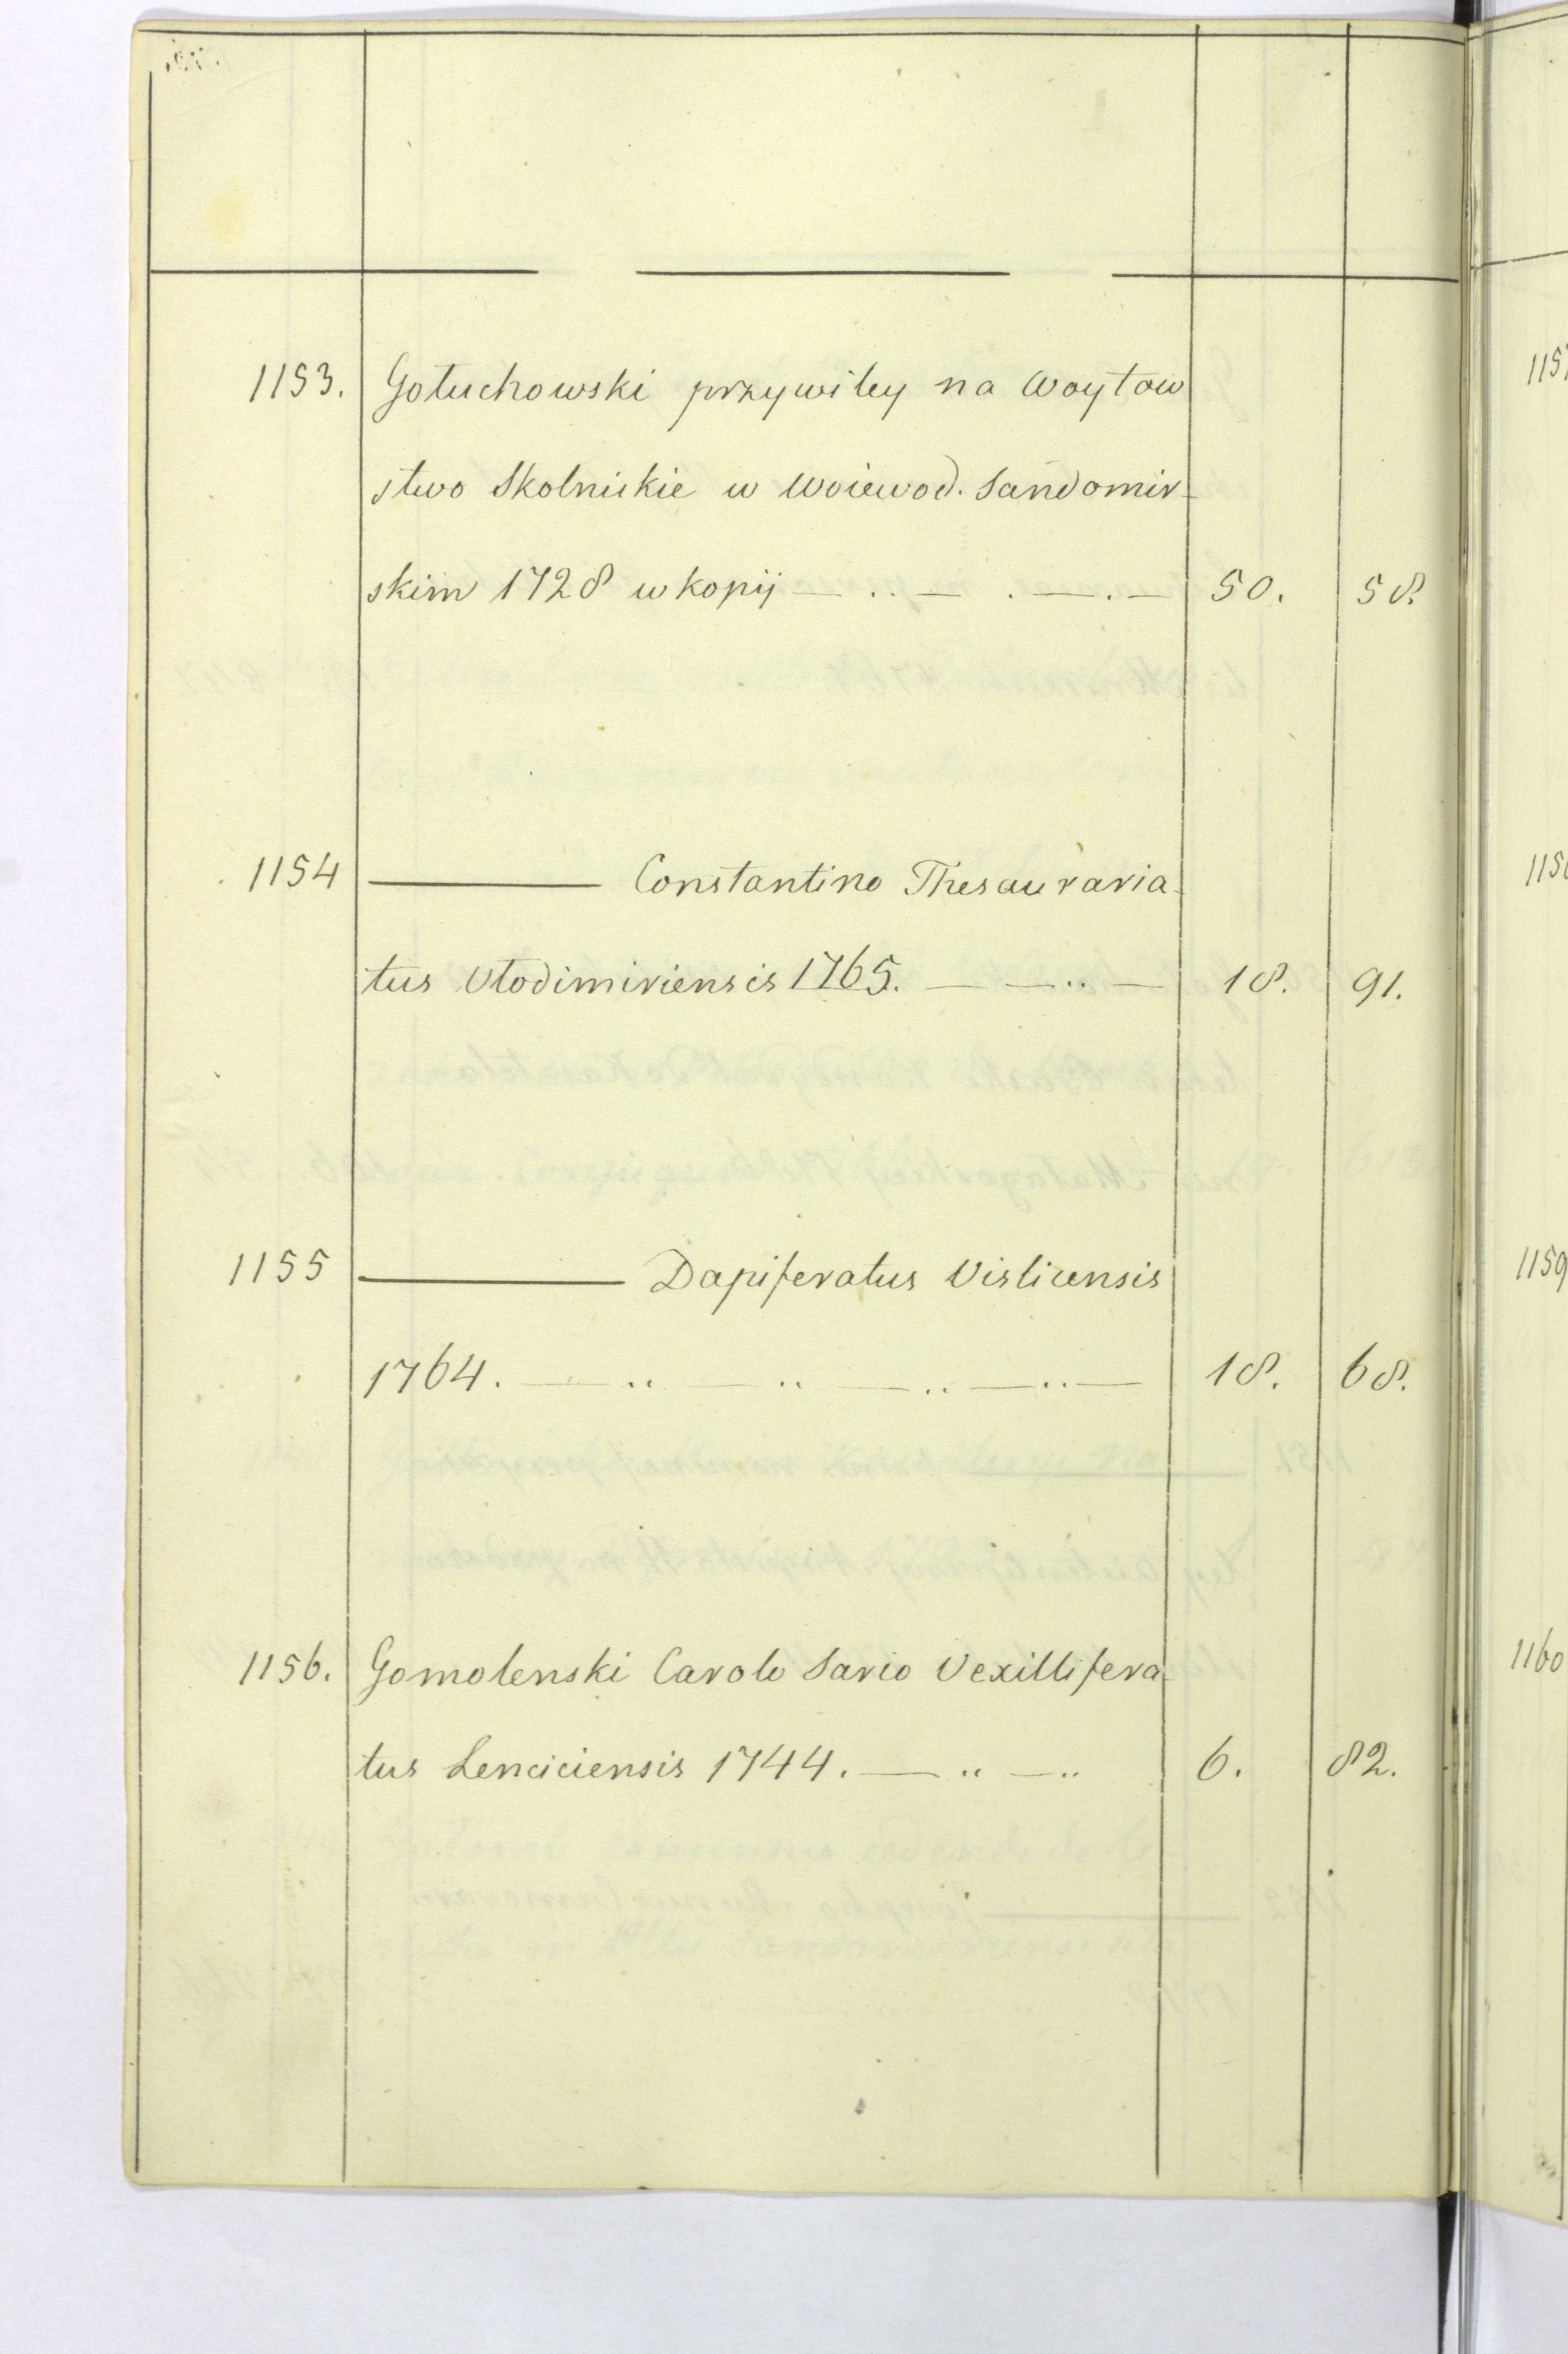 1153. Gołuchowski przywiley na Woytow
stwo Skolnickie w Woiewod. Sandomir-
skim 1728 w kopij — .. — . — . — 50. 58.
1154 ——— Constantino Thesauraria-
tus Vlodimiriensis 1765. — — .. — 18. 91.
1155 ——— Dapiferatus Vislicensis
1764. — .. — .. — .. — .. — 18. 68.
1156. Gomolenski Carolo Sario Vexillifera-
tus Lenciciensis 1744. — .. — .. 6. 82.
1159
1160